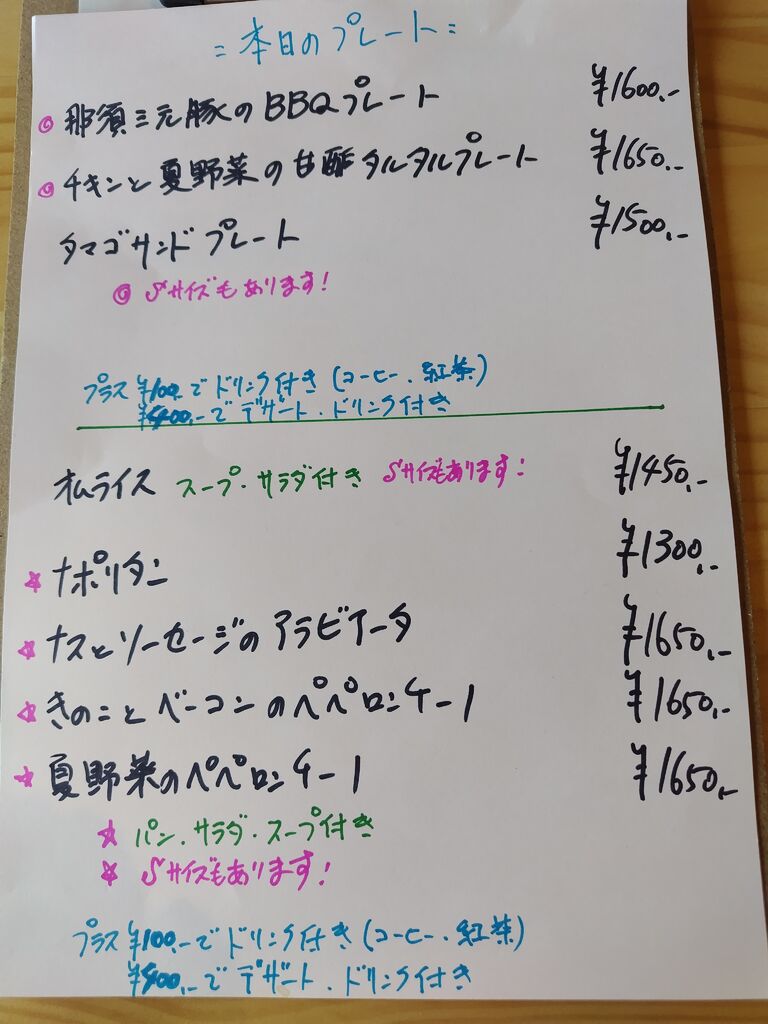 =本日のプレート=
◎ 那須三元豚のBBQプレート ¥1600.-
◎ チキンと夏野菜の甘酢タルタルプレート ¥1650.-
タマゴサンドプレート ¥1500.-
◎ Sサイズもあります!
プラス¥100.-でドリンク付き(コーヒー.紅茶)
¥400.-でデザート.ドリンク付き
オムライス スープ.サラダ付き Sサイズもあります! ¥1450.-
☆ ナポリタン ¥1300.-
☆ ナスとソーセージのアラビアータ ¥1650.-
☆ きのことベーコンのペペロンチーノ ¥1650.-
☆ 夏野菜のペペロンチーノ ¥1650.-
☆ パン.サラダ.スープ付き
☆ Sサイズもあります!
プラス¥100.-でドリンク付き(コーヒー.紅茶)
¥400.-でデザート.ドリンク付き